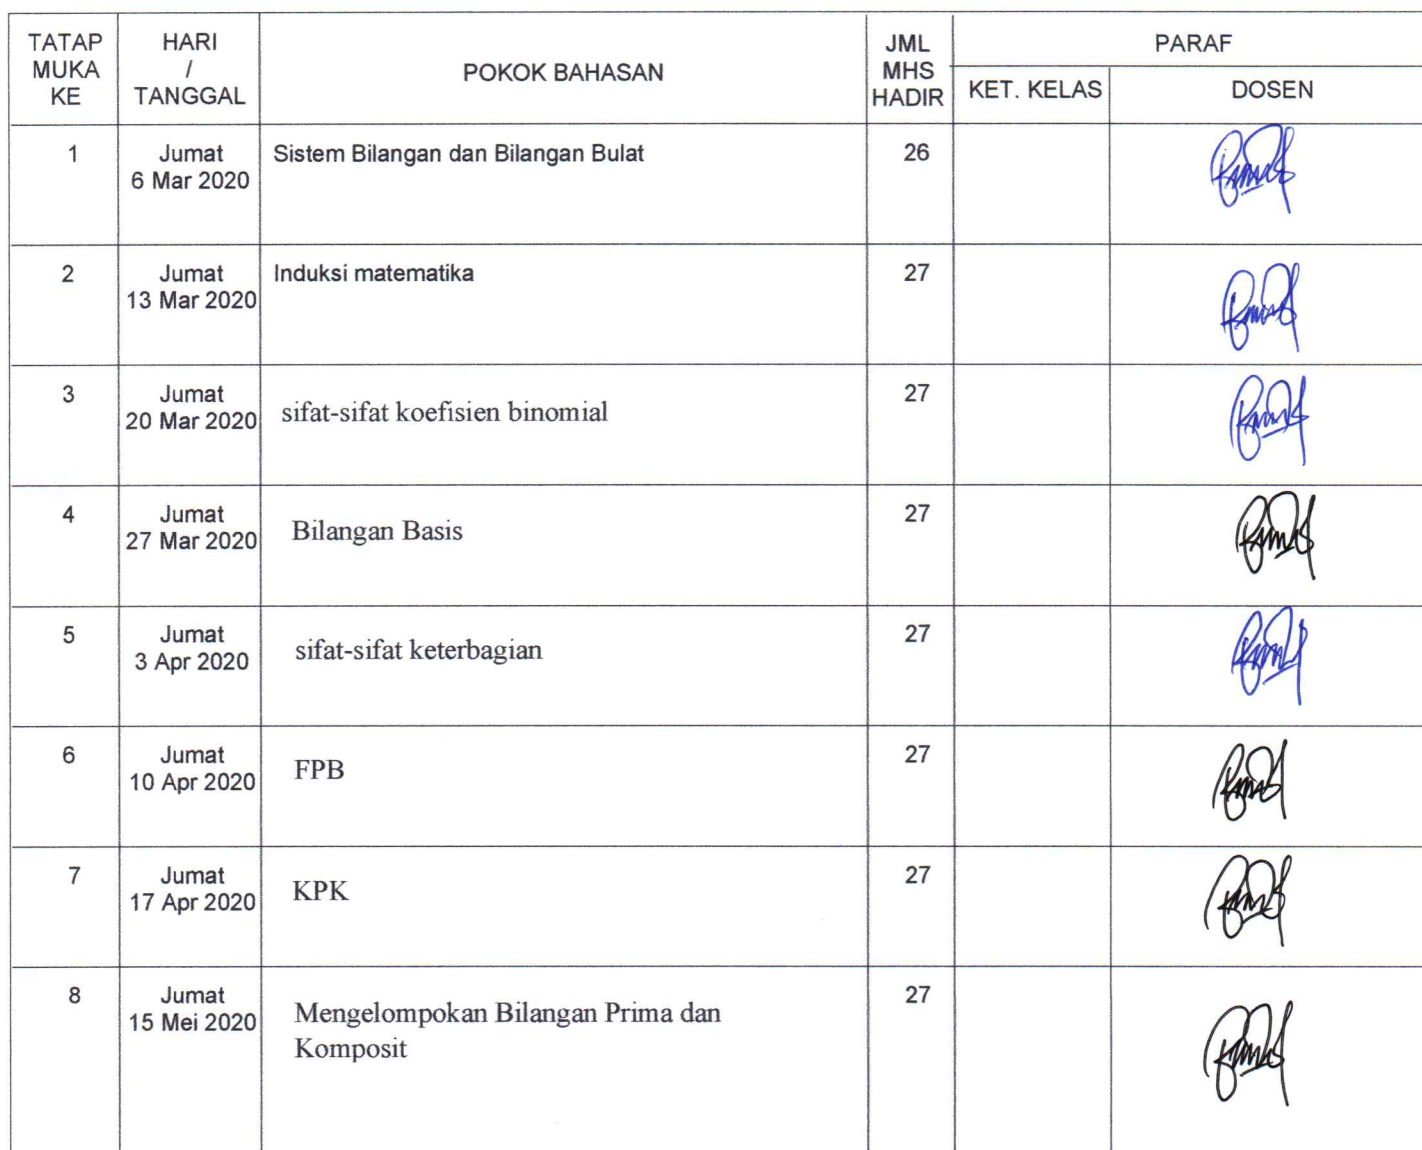 TATAP
MUKA
KE
HARI
/
TANGGAL
POKOK BAHASAN
JML
MHS
HADIR
PARAF
KET. KELAS
DOSEN
1
Jumat
6 Mar 2020
Sistem Bilangan dan Bilangan Bulat
26
2
Jumat
13 Mar 2020
Induksi matematika
27
3
Jumat
20 Mar 2020
sifat-sifat koefisien binomial
27
4
Jumat
27 Mar 2020
Bilangan Basis
27
5
Jumat
3 Apr 2020
sifat-sifat keterbagian
27
6
Jumat
10 Apr 2020
FPB
27
7
Jumat
17 Apr 2020
KPK
27
8
Jumat
15 Mei 2020
Mengelompokan Bilangan Prima dan
Komposit
27